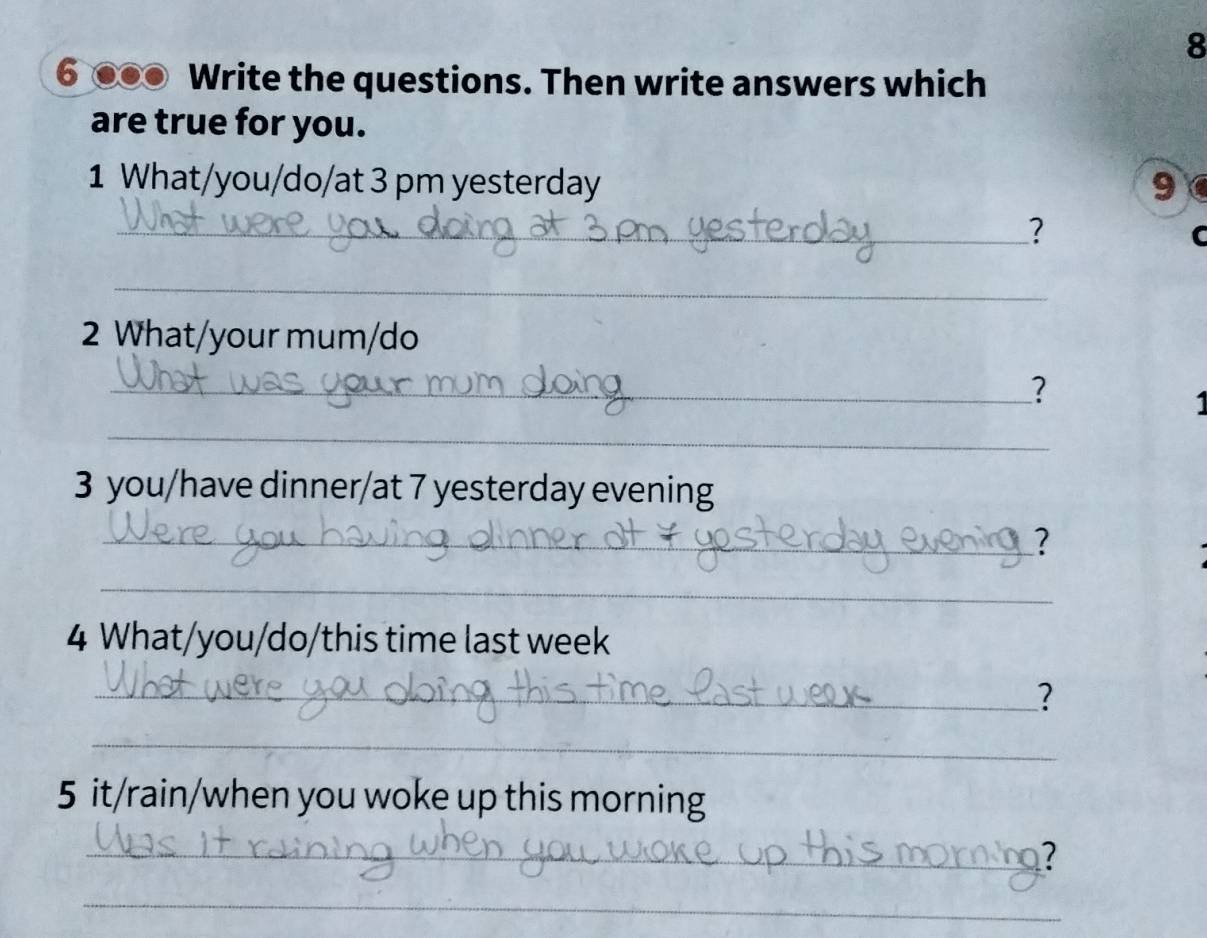 8
6 Write the questions. Then write answers which
are true for you.
1 What/you/do/at 3 pm yesterday
9
What were you doing at 3 pm yesterday ?
2 What/your mum/do
What was your mum doing ?
1
3 you/have dinner/at 7 yesterday evening
Were you having dinner at 7 yesterday evening ?
4 What/you/do/this time last week
What were you doing this time last week ?
5 it/rain/when you woke up this morning
Was it raining when you woke up this morning?